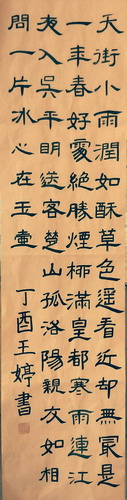 天街小雨潤如酥草色遙看近却無最是
一年春好處絕勝煙柳滿皇都寒雨連江
夜入吳平明送客楚山孤洛陽親友如相
問一片冰心在玉壺
丁酉王婷書